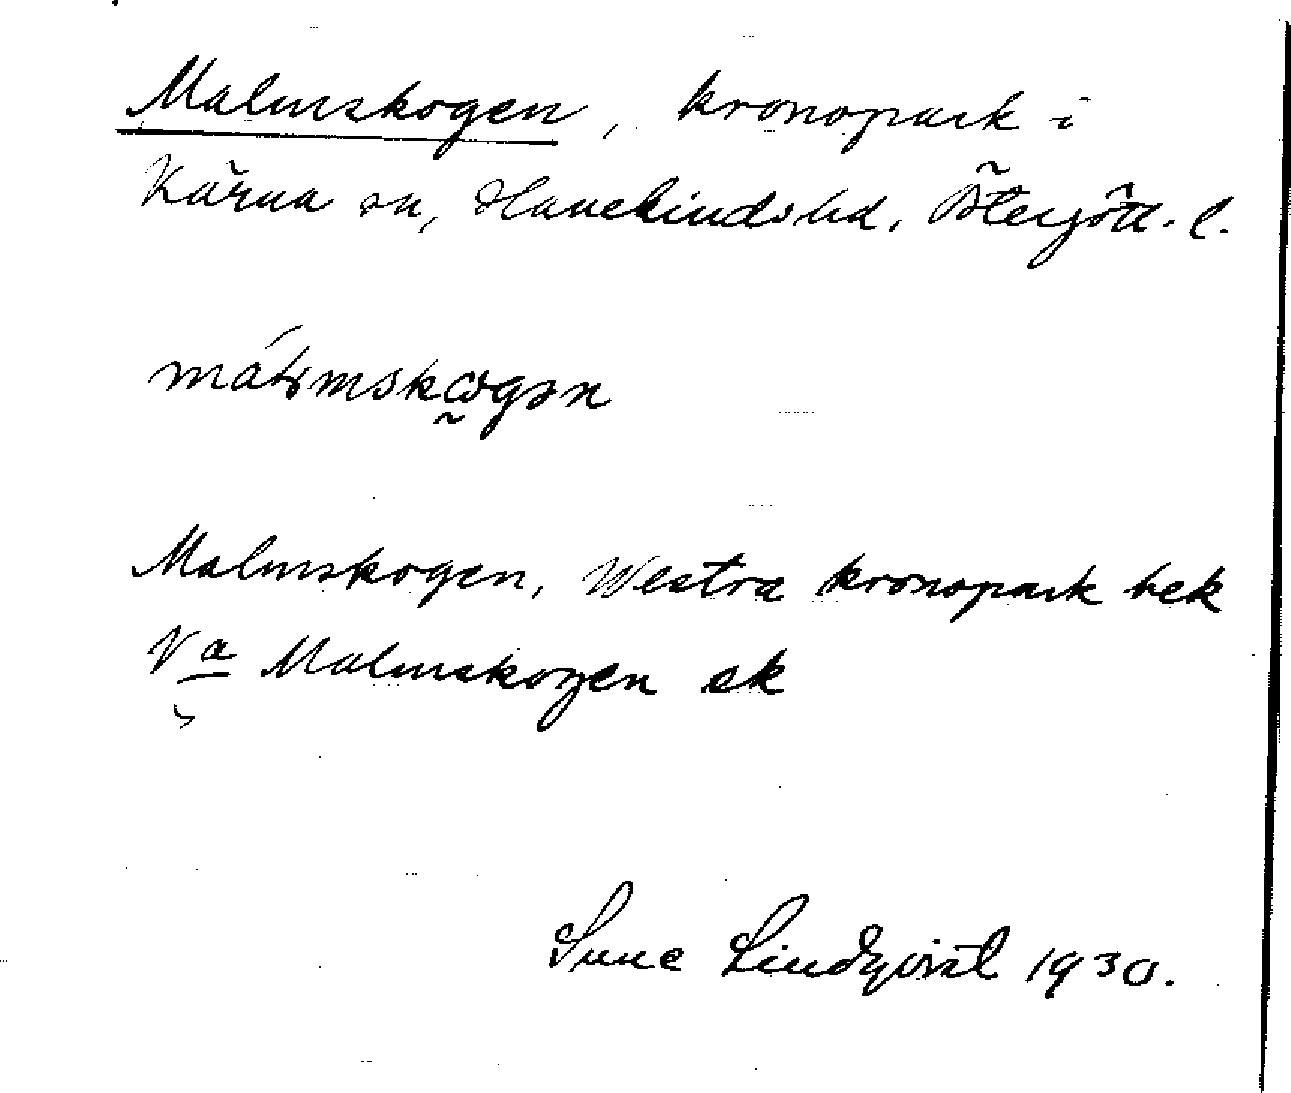 Malmskogen, kronopark i
Kärna sn, Hanekinds hd, Östergötl. l.
málmskωgən
Malmskogen, Westra kronopark hek
Va Malmskogen ek
Sune Lindqvist 1930.